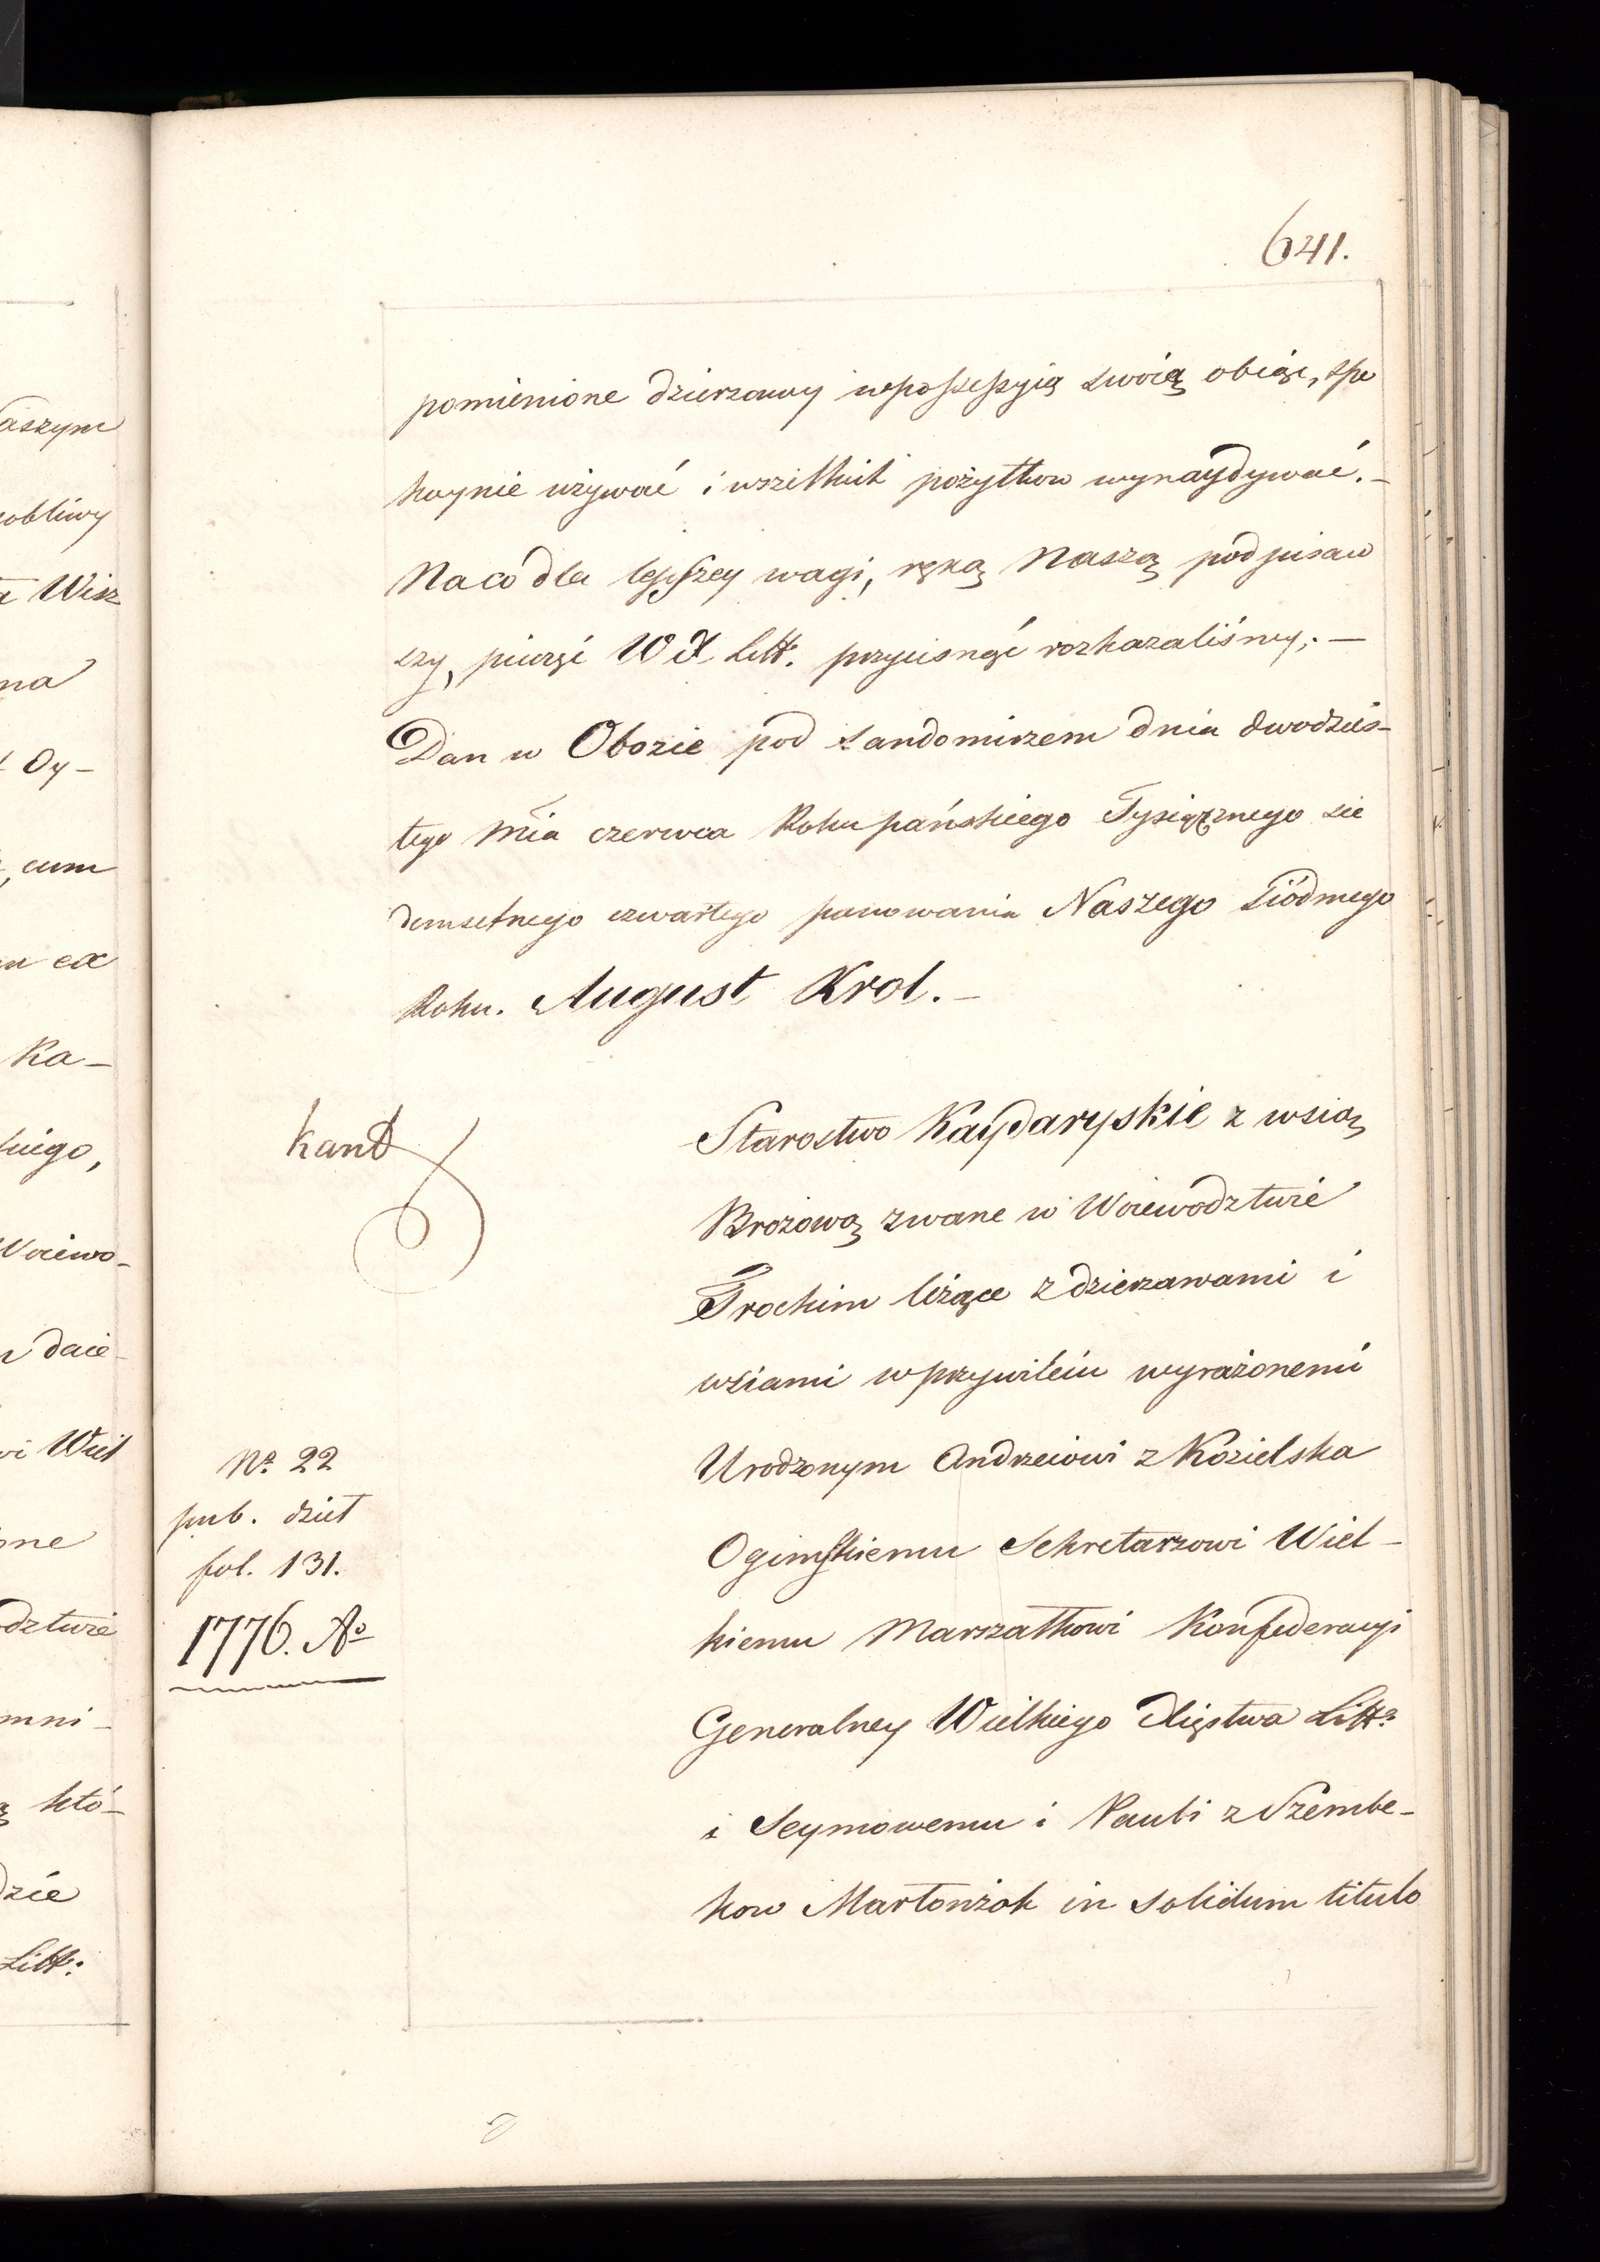 641.
pomienione dzierzawy wpossessyią swoią obiąć, spo
koynie używać i wszelkich pożytkow wynaydywać. –
Na co dla lepszey wagi, ręką Naszą podpisaw
szy, pieczęć WX Litt. przycisnąć rozkazaliśmy. –
Dan w Obozie pod Sandomirzem dnia dwodzies-
tego Mia czerwca Roku pańskiego Tysiącznego sie
demsetnego czwartego panowania Naszego siódmego
Roku. August Krol. –
Kant
Starostwo Kaydaryskie z wsią
Brozową zwane w Woiewodztwie
Trockim leżące z dzierzawami i
wsiami w przywileiu wyrażonemi
Urodzonym Andrzeiowi z Kozielska
Oginskiemu Sekretarzowi Wiel-
kiemu Marszałkowi Konfederacyi
Generalney Wielkiego Xięstwa Litto
i Seymowemu i Pauli z Szembe-
kow Małżonżok in solidum titulo
No 22
pub. dziet
fol. 131.
1776. Ao
aszym
obliwy
Wisz
na
Oy-
, cum
ex
Ka-
kiego,
Woiewo-
daie
Wiel
one
dztwie
mni-
któ-
dzie
Litt: